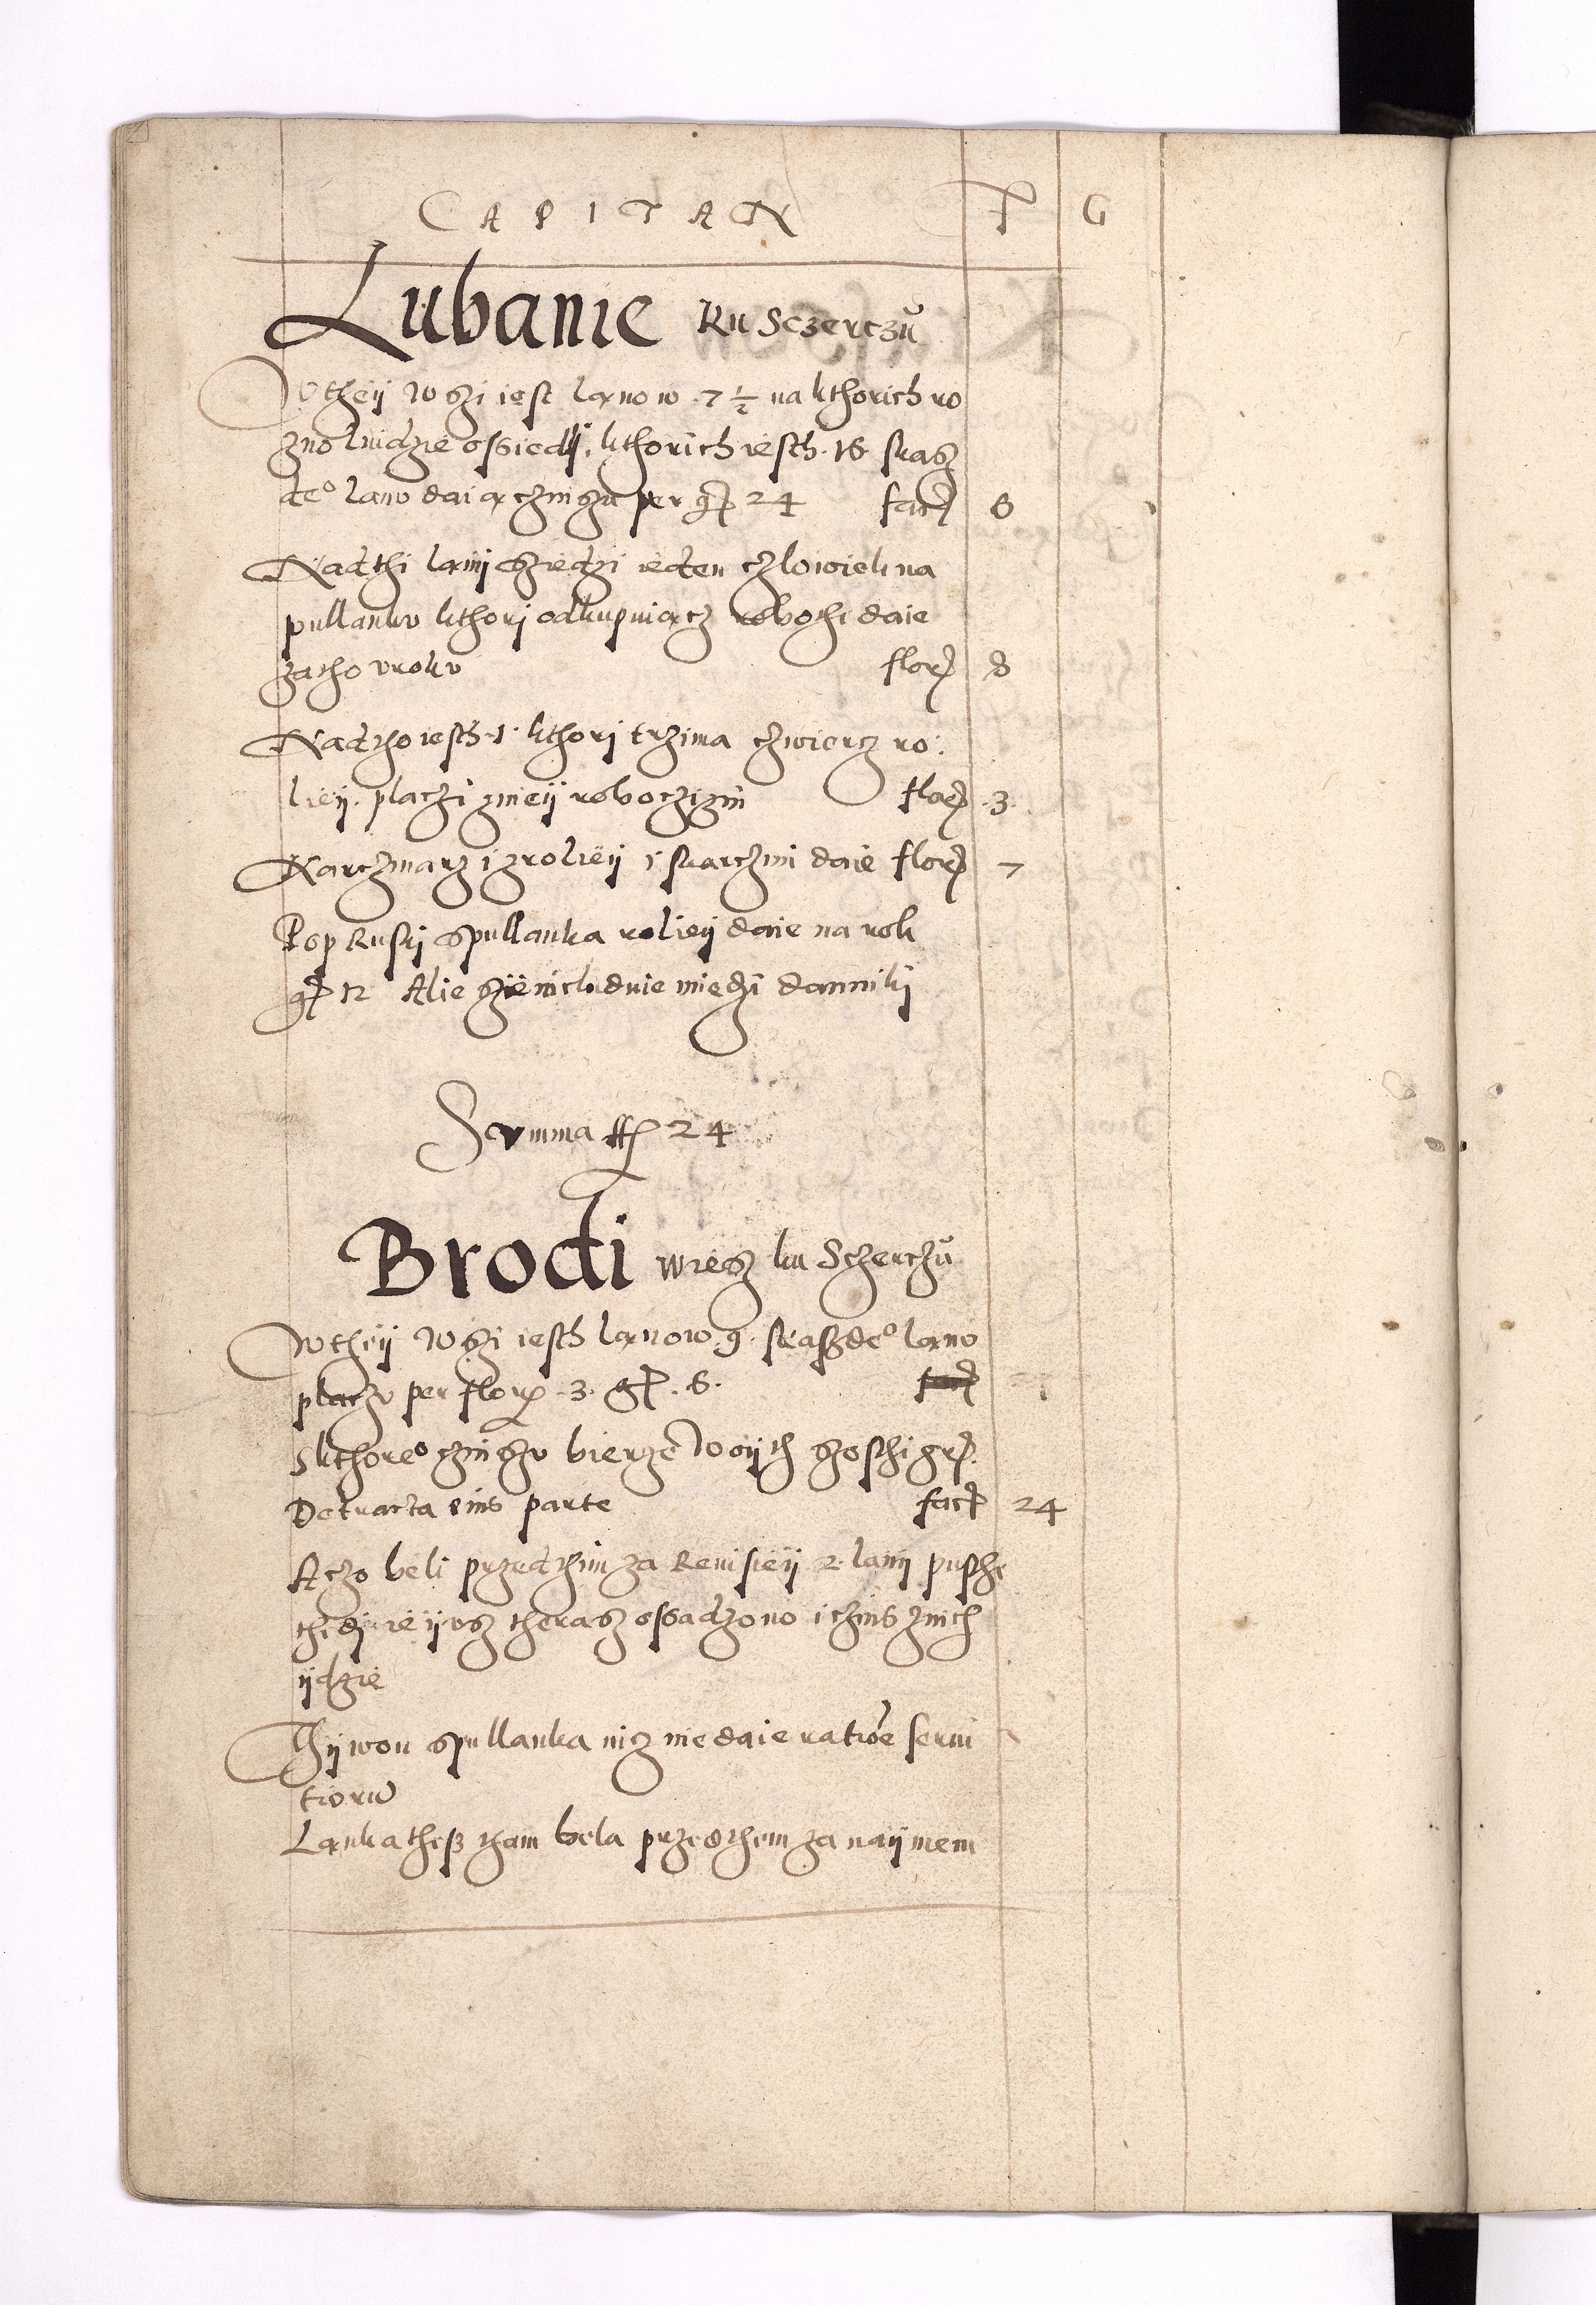 CAPITAN F G
Lubanie Ku Sczerczu
W they wszi iest lanow 7 1/2 na kthorich ro
zno ludzie ossiedli, kthorich iesth 15 skasz
de° lanu daią czinszu per gr 24 facit 6
Nad thi lani sziedzi ieden czlowiek na
pullanku kthori odkupuiącz robothi daie
zatho uroku flor 8
Nadzho iesth 1 kthori trzima czwiercz ro
liey. placzi zniey roboczizni flor 3
Karczmarz i zroliey i skarczmi daie flor 7
Pop Ruski spullanka roliey daie na rok
gr 12 Alie szie kładnie miedzi danniki
Summa fl 24
Brodi wiesz ku Sczerczu
W they wszi iesth lanow 9. skaszde° lanu
placzu per flor 3. gr. 6.
Skthore° czinszu bierze Woyth szosthi gr
Detracta eius parte facit 24
A czo beli przedthim za Reuisiey 2 lani pusthe
thedi ie yusz therasz ossadzono i czins znich
ydzie
Thywon spullanka nicz nie daie ratione serui
tiorum
Lanka thesz tham bela przedthem za naymem